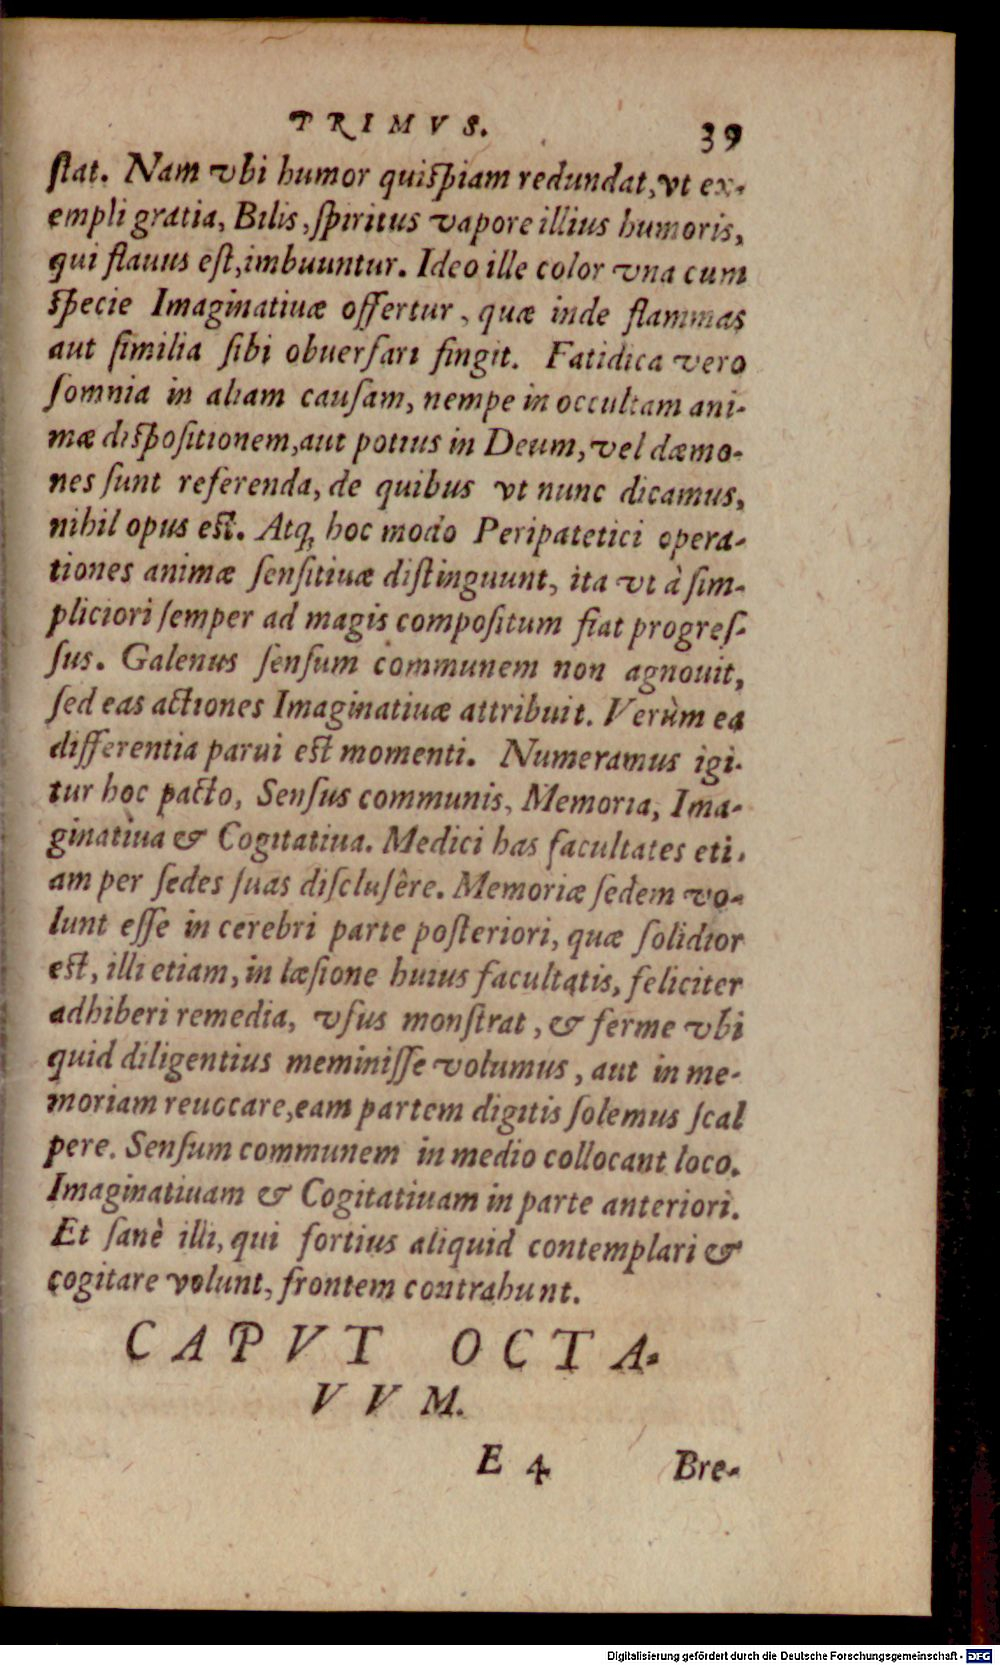 TRIMVS. 39
ſtat. Nam vbi humor quiſpiam redundat, vt ex-
empli gratia, Bilis, ſpiritus vapore illius humoris,
qui flauus eſt, imbuuntur. Ideo ille color vna cum
ſpecie Imaginatiuæ offertur, quæ inde flammas
aut ſimilia ſibi obuerſari fingit. Fatidica vero
ſomnia in aliam cauſam, nempe in occultam ani-
mæ diſpoſitionem, aut potius in Deum, vel dæmo-
nes ſunt referenda, de quibus vt nunc dicamus,
nihil opus eſt. Atq; hoc modo Peripatetici opera-
tiones animæ ſenſitiuæ diſtinguunt, ita vt à ſim-
pliciori ſemper ad magis compoſitum fiat progreſ-
ſus. Galenus ſenſum communem non agnouit,
ſed eas actiones Imaginatiuæ attribuit. Verùm ea
differentia parui eſt momenti. Numeramus igi-
tur hoc pacto, Senſus communis, Memoria, Ima-
ginatiua & Cogitatiua. Medici has facultates eti-
am per ſedes ſuas diſcluſêre. Memoriæ ſedem vo-
lunt eſſe in cerebri parte poſteriori, quæ ſolidior
eſt, illi etiam, in læſione huius facultatis, feliciter
adhiberi remedia, vſus monſtrat, & ferme vbi
quid diligentius meminiſſe volumus, aut in me-
moriam reuocare, eam partem digitis ſolemus ſcal
pere. Senſum communem in medio collocant loco.
Imaginatiuam & Cogitatiuam in parte anteriori.
Et ſanè illi, qui fortius aliquid contemplari &
cogitare volunt, frontem contrahunt.
CAPVT OCTA-
VVM.
E 4 Bre-
Digitalisierung gefördert durch die Deutsche Forschungsgemeinschaft - DFG